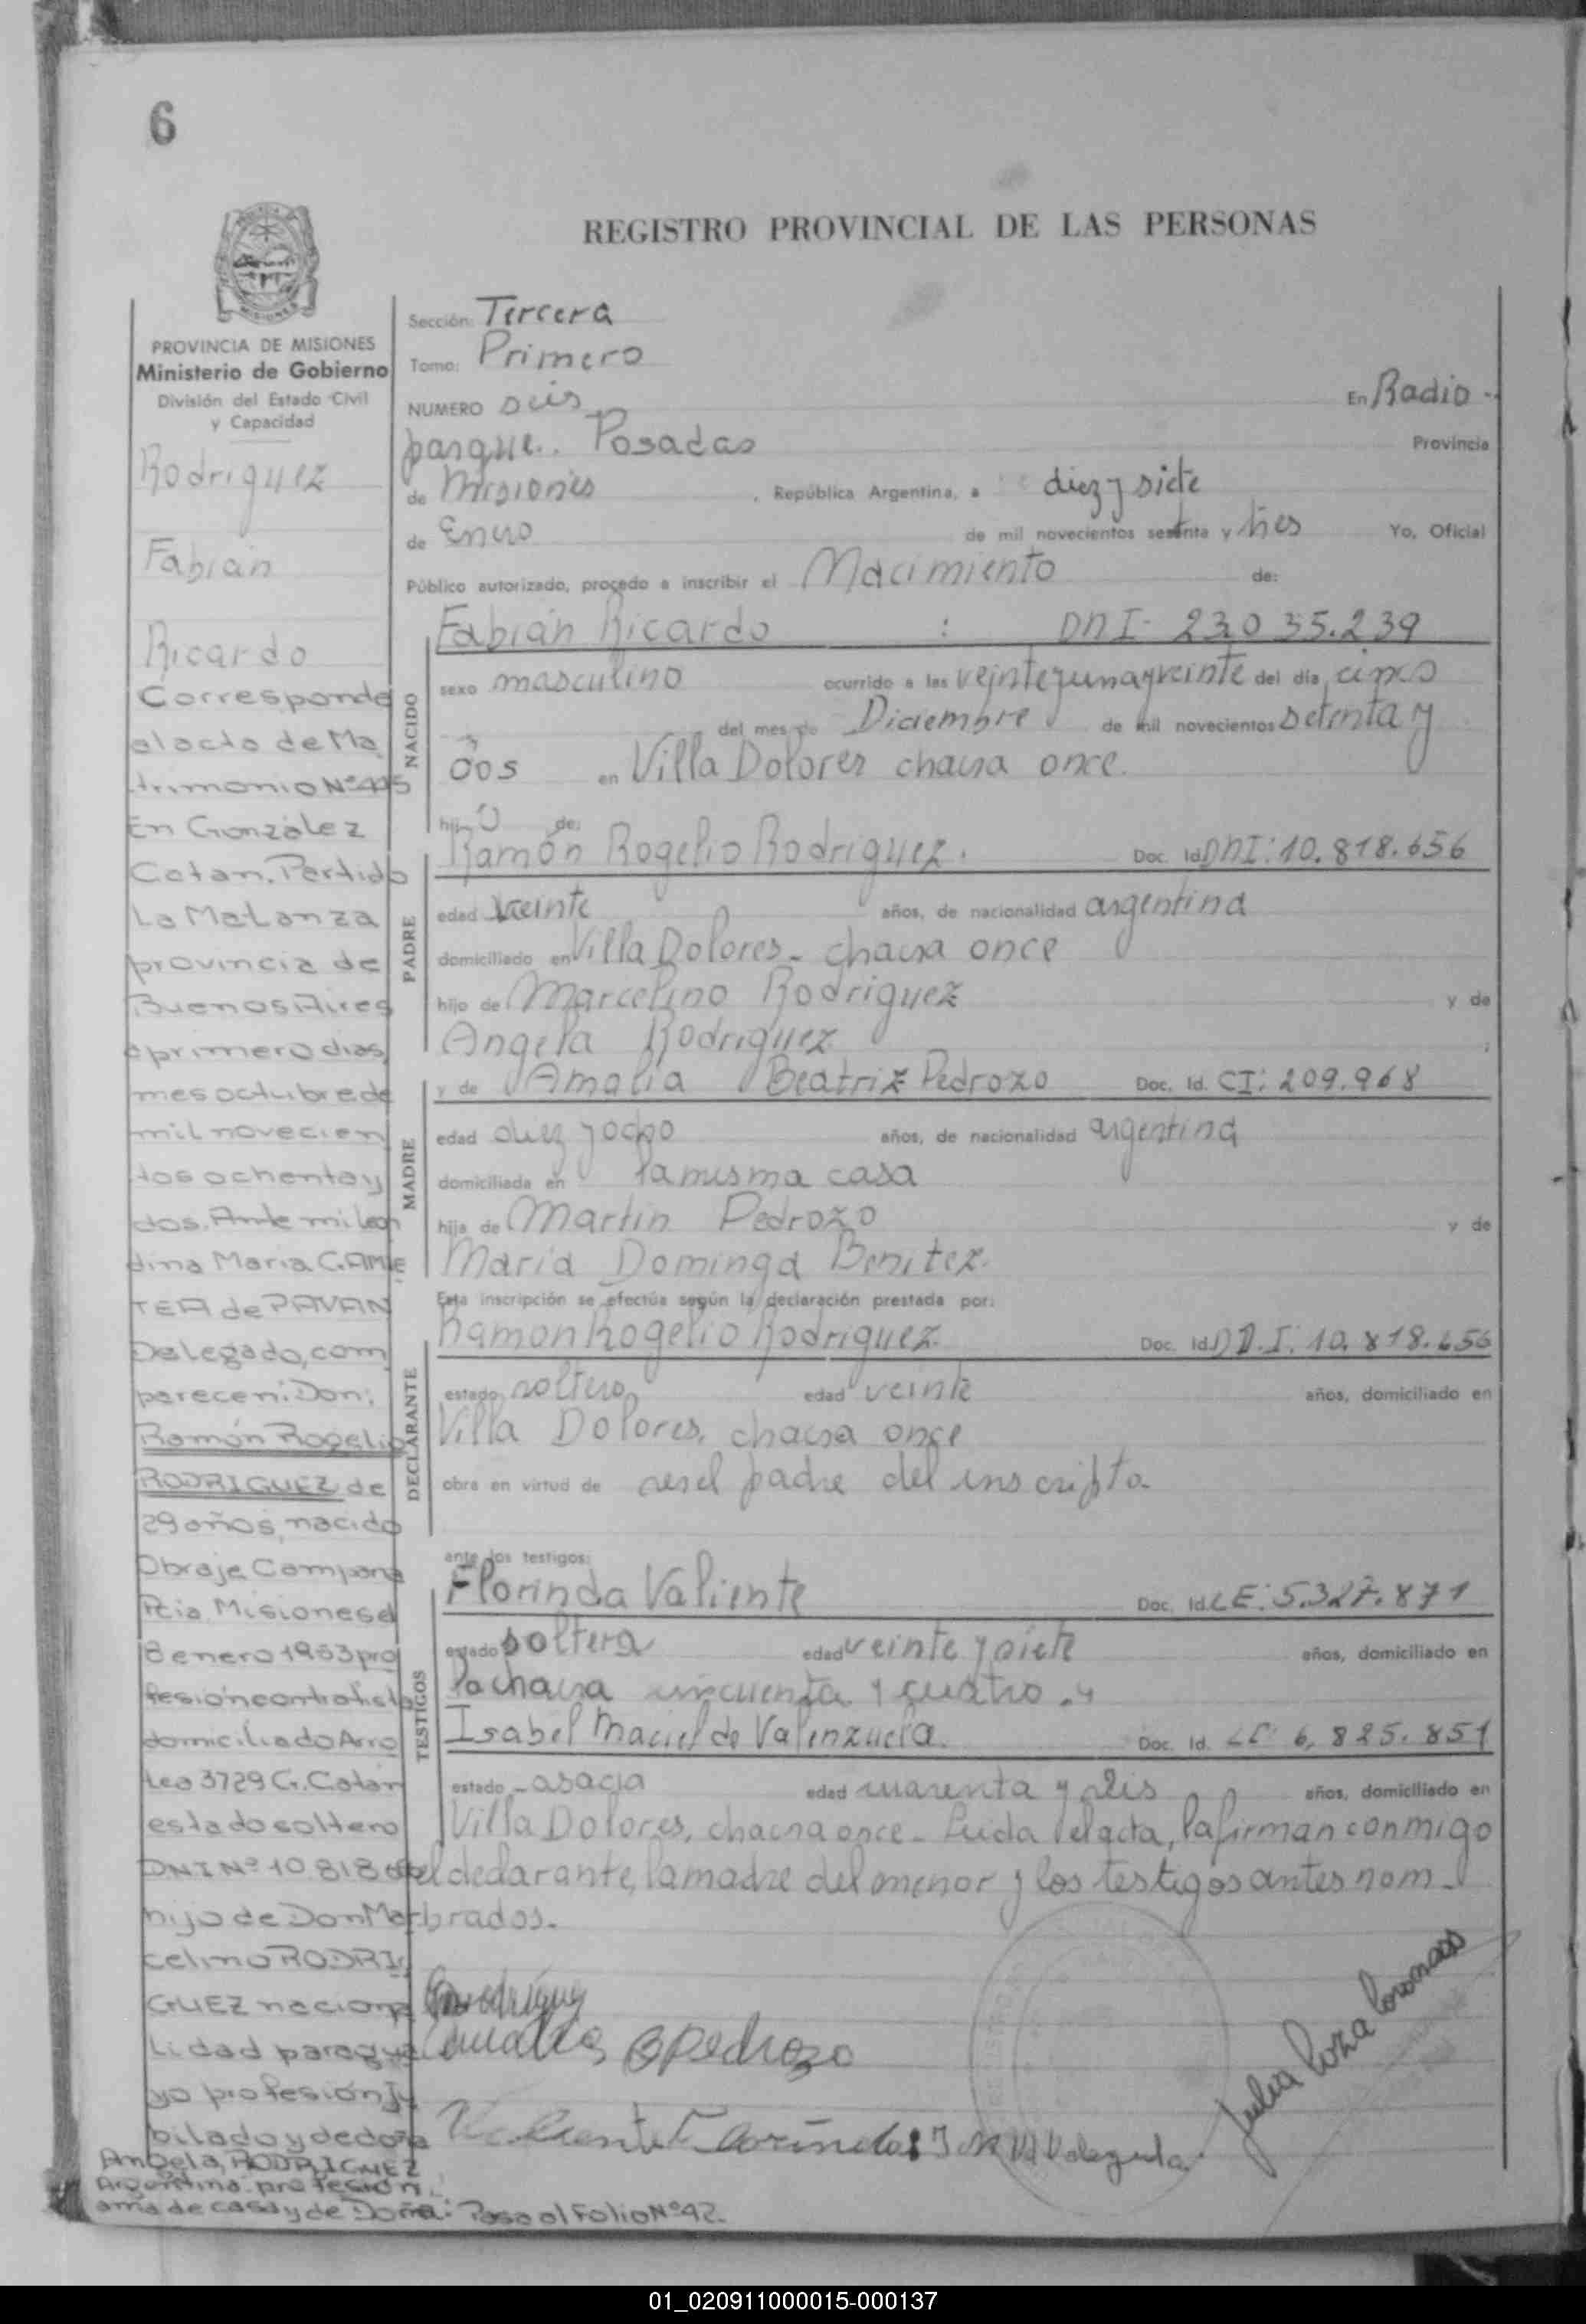 6
REGISTRO PROVINCIAL DE LAS PERSONAS
PROVINCIA DE MISIONES
Ministerio de Gobierno
División del Estado Civil
y Capacidad
Rodriguez
Fabián
Ricardo
Corresponde
al acto de Ma
trimonio Nº 495
En González
Catan. Partido
La Matanza
provincia de
Buenos Aires
a primero dias,
mes octubre de
mil novecien
tos ochenta y
dos. Ante mi Leon
dina Maria GAM
TEA de PAVAN
Delegado, com
parecen: Don;
Ramón Rogelio
RODRIGUEZ de
29 años, nacido
Obraje Campana
Pcia. Misiones el
8 enero 1953 pro
fesión contratista
domiciliado Arro
Leo 3729 G. Catán
estado soltero
DNI Nº 10.818
hijo de Don Mar
celino RODRI
GUEZ naciona
lidad paragua
yo profesión Ju
bilado y de doña
Angela RODRIGUEZ
Argentina profesión
ama de casa y de Doña: Pasa al Folio Nº 92.
Sección: Tercera
Tomo: Primero
NUMERO seis En Radio -
parque.. Posadas Provincia
de Misiones , República Argentina, a diez y siete
de Enero de mil novecientos setenta y tres Yo, Oficial
Público autorizado, procedo a inscribir el Nacimiento de:
NACIDO
Fabián Ricardo : DNI - 23.035.239
sexo masculino ocurrido a las veinte y una y veinte del día cinco
del mes de Diciembre de mil novecientos setenta y
dos en Villa Dolores chacra once.
hijo de:
PADRE
Ramón Rogelio Rodriguez. Doc. Id. DNI: 10.818.656
edad veinte años, de nacionalidad argentina
domiciliado en Villa Dolores - chacra once
hijo de Marcelino Rodriguez y de
Angela Rodriguez
MADRE
y de Amalia Beatriz Pedrozo Doc. Id. CI: 209.968
edad diez y ocho años, de nacionalidad argentina
domiciliada en la misma casa
hija de Martin Pedrozo y de
María Dominga Benitez.
Esta inscripción se efectúa según la declaración prestada por:
DECLARANTE
Ramon Rogelio Rodriguez. Doc. Id. D.N.I: 10.818.656
estado soltero edad veinte años, domiciliado en
Villa Dolores, chacra once
obra en virtud de ser el padre del inscripto.
ante los testigos:
TESTIGOS
Florinda Valiente Doc. Id. LE: 5.327.871
estado soltera edad veinte y siete años, domiciliado en
la chacra cincuenta y cuatro. y
Isabel Maciel de Valenzuela. Doc. Id. LC: 6.825.851
estado casada edad cuarenta y seis años, domiciliado en
Villa Dolores, chacra once - Leida el acta, la firman conmigo
el declarante, la madre del menor y los testigos antes nom-
brados.
Rodriguez
Amalia B Pedrozo
Valiente Florinda
Julia
01_020911000015-000137